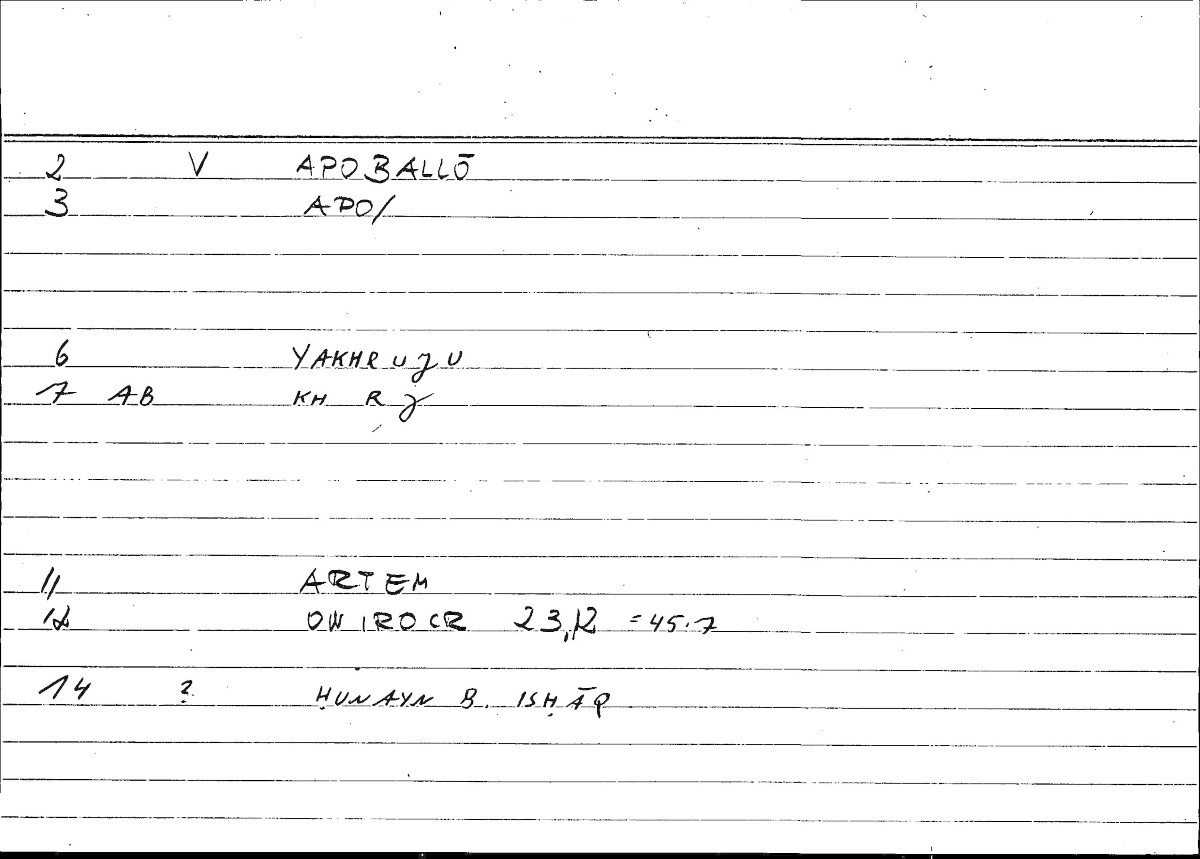 2 V APOBALLŌ
3 APO/
6 YAKHRUJU
7 AB KH R J
11 ARTEM
12 ONIROCR 23,12 = 45.7
14 ? ḤUNAYN B. ISḤĀQ